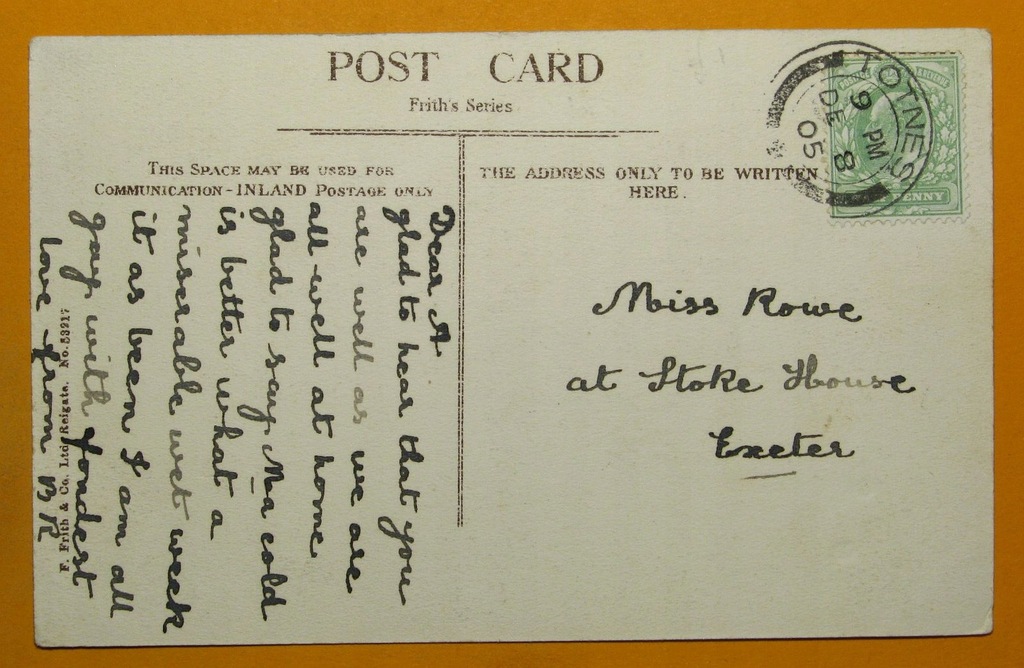 POST CARD
Frith's Series
THIS SPACE MAY BE USED FOR
COMMUNICATION - INLAND POSTAGE ONLY
THE ADDRESS ONLY TO BE WRITTEN
HERE.
TOTNES
9 PM
DE 8
05
ENNY
Dear A
glad to hear that you
are well as we are
all well at home
glad to say Ma cold
is better what a
miserable wet week
it as been I am all
gay with fondest
love from BR
F. Frith & Co. Ltd. Reigate. No. 53217
Miss Rowe
at Stoke House
Exeter